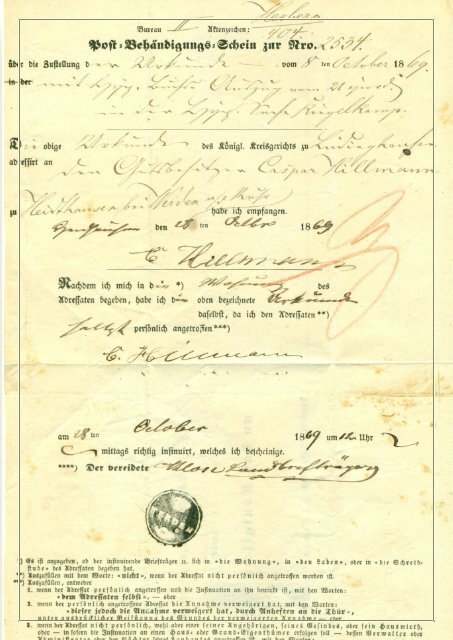 Bureau II Aktenzeichen:
404.
Post-Behändigungs-Schein zur Nro. 2534.
über die Zustellung der Urkunde vom 8 ten October 1869.
in der mit
in der Sache
Die obige Urkunde des Königl. Kreisgerichts zu Lüdinghausen
adressirt an den Gutsbesitzer Caspar Hillmann
zu Heidhausen bei Werden a/d Ruhr
habe ich empfangen.
Heidhausen den 18 ten Octbr 1869
C Hillmann
Nachdem ich mich in die *) Wohnung des
Adressaten begeben, habe ich die oben bezeichnete Urkunde
daselbst, da ich den Adressaten **)
selbst persönlich angetroffen ***)
C. Hillmann
am 18 ten October 1869 um 12 Uhr
mittags richtig insinuirt, welches ich bescheinige.
****) Der vereidete Klose Landbriefträger
*) Es ist anzugeben, ob der insinuirende Briefträger sich in «die Wohnung», in «den Laden», oder in «die Schreib-
stube» des Adressaten begeben hat.
**) Auszufüllen mit dem Worte: «nicht», wenn der Adressat nicht persönlich angetroffen worden ist.
***) Auszufüllen, entweder
1. wenn der Adressat persönlich angetroffen und die Insinuation an ihn bewirkt ist, mit den Worten:
«dem Adressaten selbst»,
2. wenn der persönlich angetroffene Adressat die Annahme verweigert hat, mit den Worten:
«dieser jedoch die Annahme verweigert hat, durch Anheften an die Thür»,
unter ausdrücklicher Beifügung des Grundes der verweigerten Annahme — oder
3. wenn der Adressat nicht persönlich, wol aber einer seiner Angehörigen, seines Gesindes, oder sein Hauswirth,
oder — in sofern die Insinuation an einen Haus- oder Grund-Eigenthümer erfolgen soll — dessen Verwalter oder